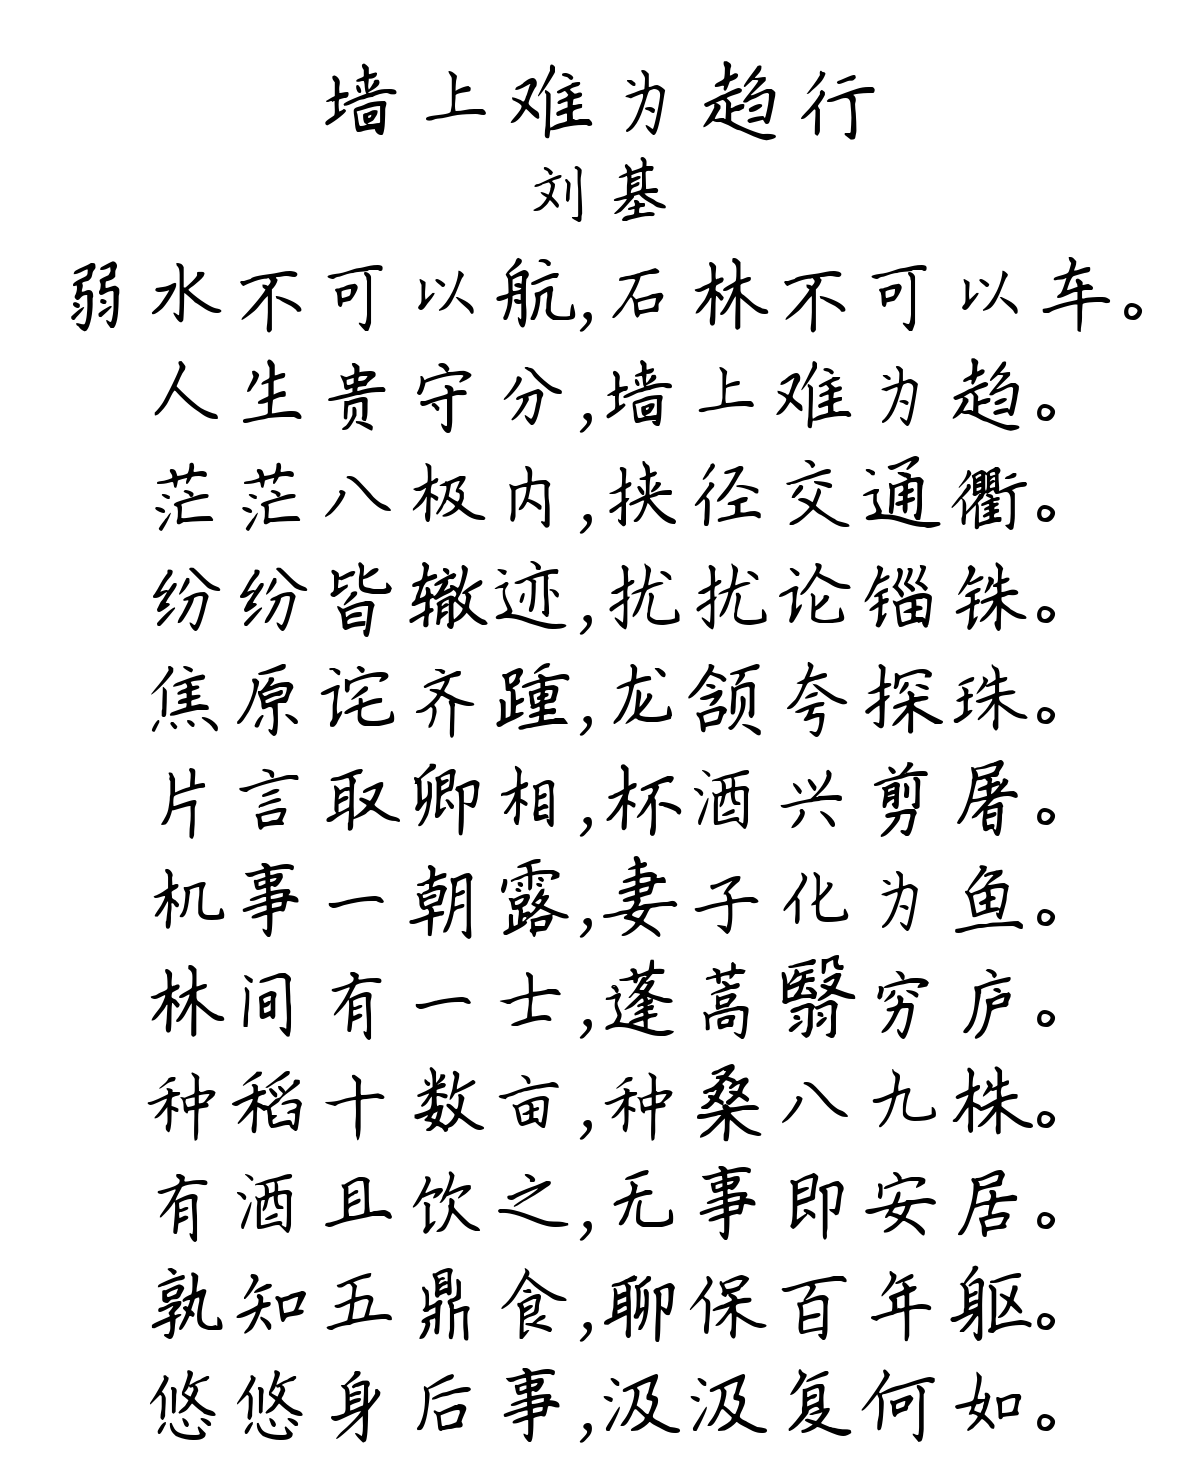 墙上难为趋行
刘基
弱水不可以航,石林不可以车。
人生贵守分,墙上难为趋。
茫茫八极内,挟径交通衢。
纷纷皆辙迹,扰扰论锱铢。
焦原诧齐踵,龙颔夸探珠。
片言取卿相,杯酒兴剪屠。
机事一朝露,妻子化为鱼。
林间有一士,蓬蒿翳穷庐。
种稻十数亩,种桑八九株。
有酒且饮之,无事即安居。
孰知五鼎食,聊保百年躯。
悠悠身后事,汲汲复何如。